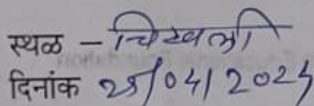 स्थळ – चिखली
दिनांक 25/04/2025